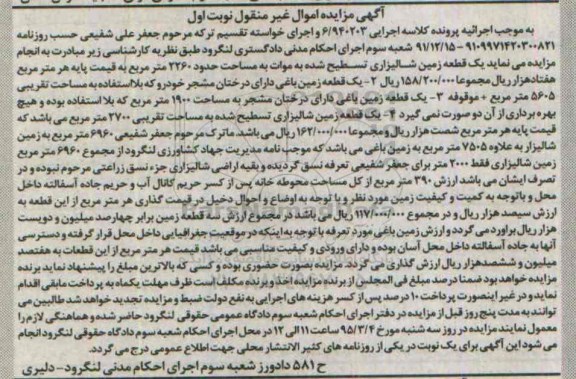 آگهی مزایده اموال غیر منقول نوبت اول
به موجب اجرائیه پرونده کلاسه اجرایی ۶/۹۴۰۲۰۳ و اجرای خواسته تقسیم ترکه مرحوم جعفر علی شفیعی حسب روزنامه
۹۱۰۹۹۷۱۴۲۰۳۰۰۸۲۱ – ۹۱/۱۲/۱۵ شعبه سوم اجرای احکام مدنی دادگستری لنگرود طبق نظریه کارشناسی زیر مبادرت به انجام
مزایده می نماید یک قطعه زمین شالیزاری تسطیح شده به موات به مساحت حدود ۲۲۶۰ متر مربع به قیمت پایه هر متر مربع
هفتادهزار ریال مجموعا ۱۵۸/۲۰۰/۰۰۰ ریال ۲- یک قطعه زمین باغی دارای درختان مشجر خودرو که بلااستفاده به مساحت تقریبی
۵۶۰۵ متر مربع + موقوفه ۳- یک قطعه زمین باغی دارای درختان مشجر به مساحت ۱۹۰۰ متر مربع که بلا استفاده بوده و هیچ
بهره برداری از آن دو صورت نمی گیرد ۴- یک قطعه زمین شالیزاری تسطیح شده به مساحت تقریبی ۲۷۰۰ متر مربع می باشد که
قیمت پایه هر متر مربع شصت هزار ریال و مجموعا ۱۶۲/۰۰۰/۰۰۰ ریال می باشد. ماترک مرحوم جعفر شفیعی ۶۹۶۰ متر مربع به زمین
شالیزار به علاوه ۷۵۰۵ متر مربع به زمین باغی می باشد که موجب نامه مدیریت جهاد کشاورزی لنگرود از مجموع ۶۹۶۰ متر مربع
زمین شالیزاری فقط ۲۰۰۰ متر برای جعفر شفیعی تعرفه نسق گردیده و بقیه اراضی شالیزاری جزء نسق زراعتی مرحوم نبوده و در
تصرف ایشان می باشد ارزش ۳۹۰ متر مربع از کل مساحت محوطه خانه پس از کسر حریم کانال آب و حریم جاده آسفالته داخل
محل و باتوجه به کمیت و کیفیت زمین مورد نظر و با توجه به اوضاع و احوال دخیل در قیمت گذاری هر متر مربع از این قطعه به
ارزش سیصد هزار ریال و در مجموع ۱۱۷/۰۰۰/۰۰۰ ریال می باشد در مجموع ارزش سه قطعه زمین برابر چهارصد میلیون و دویست
هزار ریال براورد می گردد و ارزش زمین باغی مورد تعرفه با توجه به اینکه در موقعیت جغرافیایی داخل محل قرار گرفته و دسترسی
آنها به جاده آسفالته داخل محل آسان بوده و دارای ورودی و کیفیت مناسبی می باشد قیمت هر متر مربع از این قطعات به هفتصد
میلیون و ششصدهزار ریال ارزش گذاری می گردد. مزایده بصورت حضوری بوده و کسی که بالاترین مبلغ را پیشنهاد نماید برنده
مزایده خواهد بود ضمنا ده درصد مبلغ فی المجلس از برنده مزایده اخذ و برنده مکلف است ظرف مهلت یکماه به پرداخت مابقی اقدام
نماید و در غیر اینصورت پرداخت ۱۰ درصد پس از کسر هزینه های اجرایی به نفع دولت ضبط و مزایده تجدید خواهد شد طالبین می
توانند به مدت پنج روز قبل از مزایده در دفتر اجرای احکام شعبه سوم دادگاه عمومی حقوقی لنگرود حاضر شده و هماهنگی لازم را
معمول نمایند مزایده در روز سه شنبه مورخ ۹۵/۳/۴ ساعت ۱۱ الی ۱۲ در محل اجرای احکام شعبه سوم دادگاه حقوقی لنگرود انجام
می شود این آگهی برای یک نوبت در یکی از روزنامه های کثیر الانتشار محلی جهت اطلاع عمومی درج می گردد.
ح ۵۸۱ دادورز شعبه سوم اجرای احکام مدنی لنگرود- دلیری